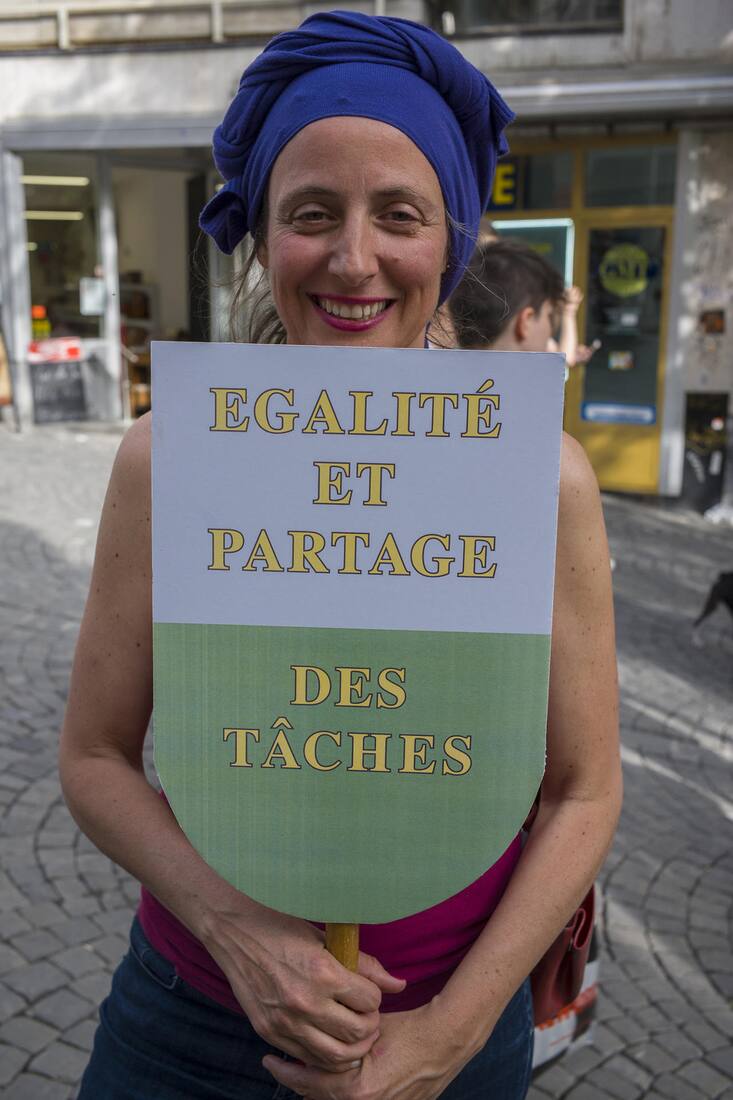 EGALITÉ
ET
PARTAGE
DES
TÂCHES